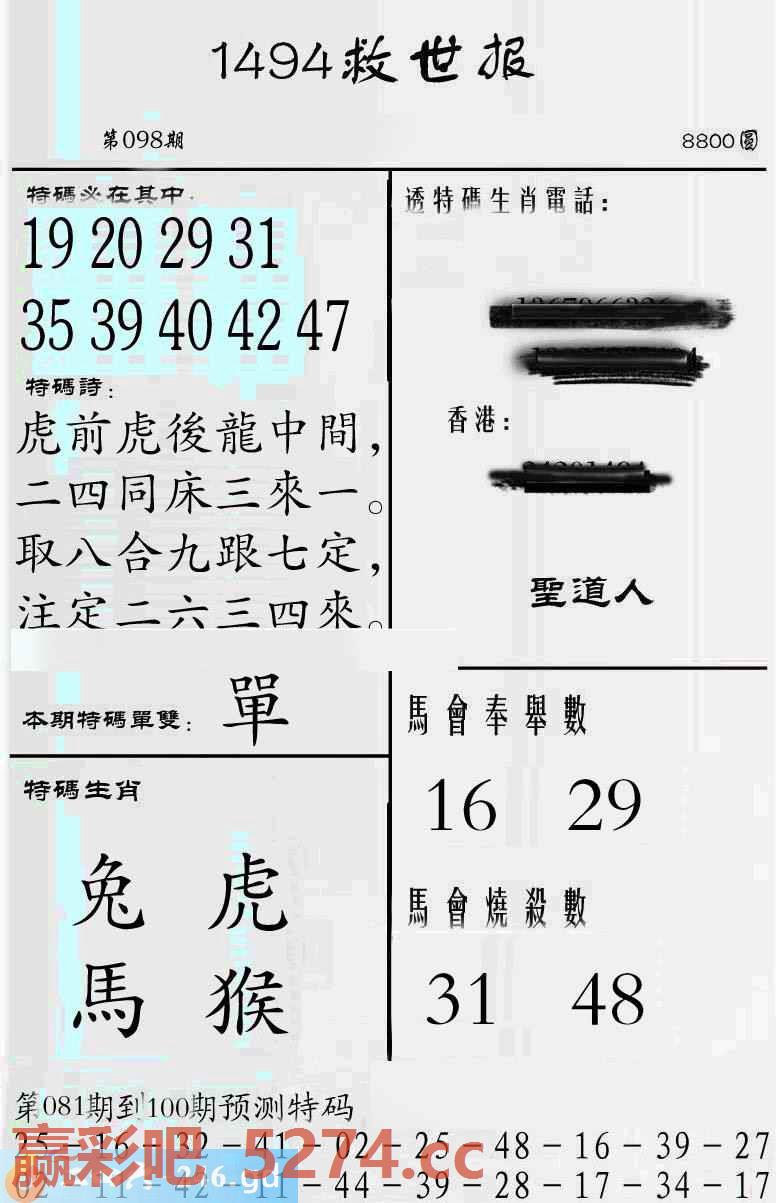 1494救世报
第098期
8800圓
特碼必在其中:
19 20 29 31
35 39 40 42 47
特碼詩:
虎前虎後龍中間,
二四同床三來一。
取八合九跟七定,
注定二六三四來。
本期特碼單雙: 單
特碼生肖
兔 虎
馬 猴
透特碼生肖電話:
香港:
聖道人
馬會奉舉數
16 29
馬會燒殺數
31 48
第081期到100期预测特码
25-16-32-41-02-25-48-16-39-27
02-11-42-11-44-39-28-17-34-17
赢彩吧 5274.cc
246.gd